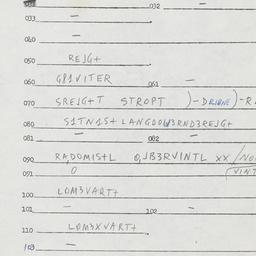 032 —
033 —
040 —
050 REJG+
060 G81VITER 061 —
070 SREJG+T STROPT )-DRIONE)-R
080 S1TN1S+ LANGDOW3RND3REJG+
081 — 082 —
090 RADOMIS+L O,JB3RVINTL XX /NO
091 O (VINT
100 LDM3VART+
101 — 102 —
110 LDM3XVART+
103 —